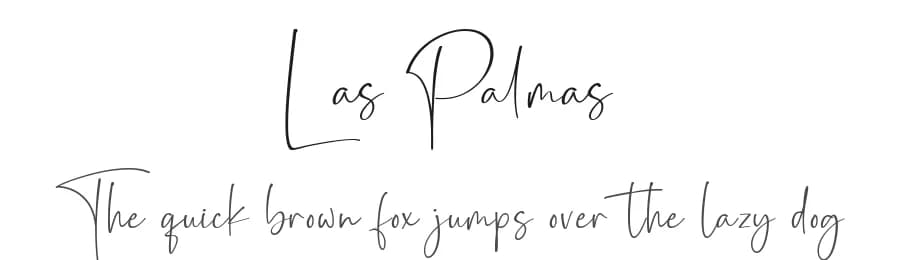 Las Palmas
The quick brown fox jumps over the lazy dog